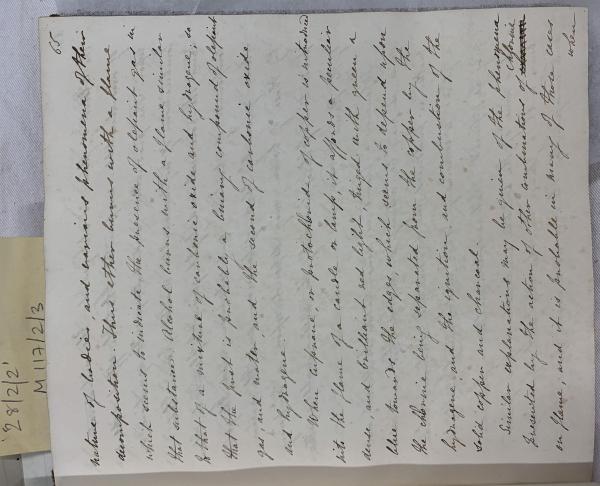 65.
nature of bodies and various phenomena of their
decomposition. Thus ether burns with a flame
which seems to indicate the presence of olefiant gas in
that substance. Alcohol burns with a flame similar
to that of a mixture of carbonic oxide and hydrogene; so
that the first is probably a binary compound of olefiant
gas and water and the second of carbonic oxide
and hydrogene.
When cuprane, or protochloride of copper is introduced
into the flame of a candle or lamp, it affords a peculiar
dense and brilliant red light, tinged with green &
blue towards the edges, which seems to depend upon
the chlorine being separated from the copper by the
hydrogene, and the ignition and combustion of the
solid copper and charcoal.
Similar explanations may be given of the phenomena
presented by the action of other combinations of chlorine
on flame; and it is probable in many of those cases
when
'28/2/2'
M 117/2/3